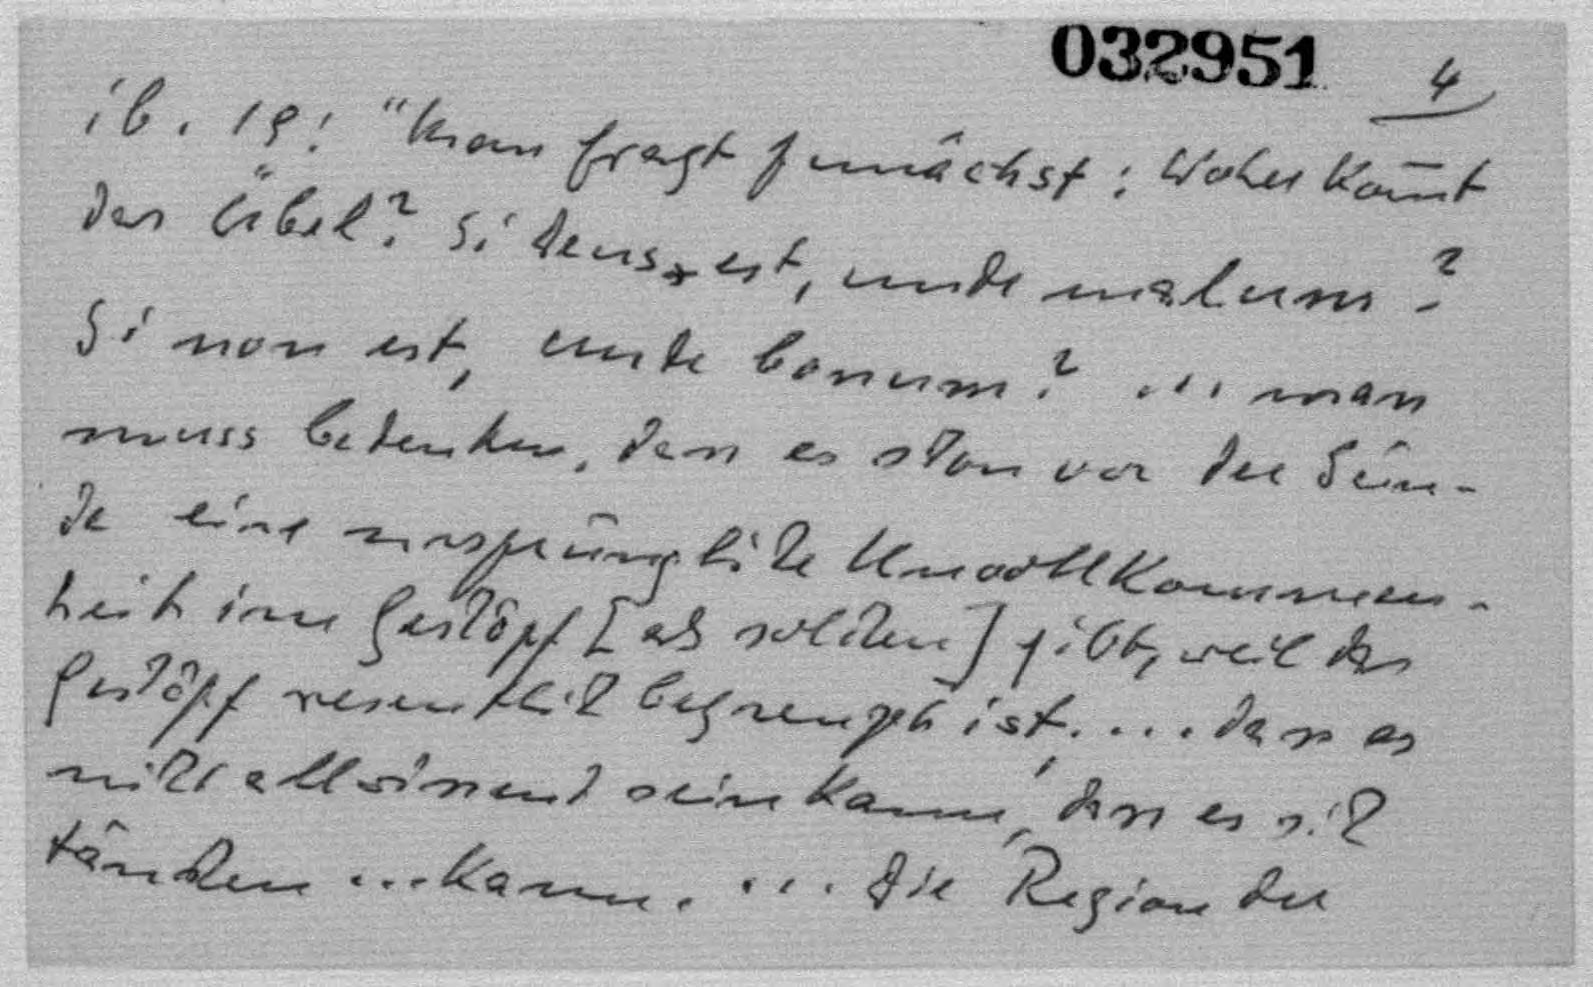 032951
4
ib. 19: "Man fragt zunächst: Woher kom̄t
das Übel? Si deus est, unde malum?
Si non est, unde bonum? ... man
muss bedenken, dass es schon vor der Sün-
de eine ursprüngliche Unvollkommen-
heit im Geschöpf [als solchen] gibt, weil das
Geschöpf wesentlich begrenzt ist, .... dass es
nicht allwissend sein kann, dass es sich
täuschen ... kann. ... Die Region der